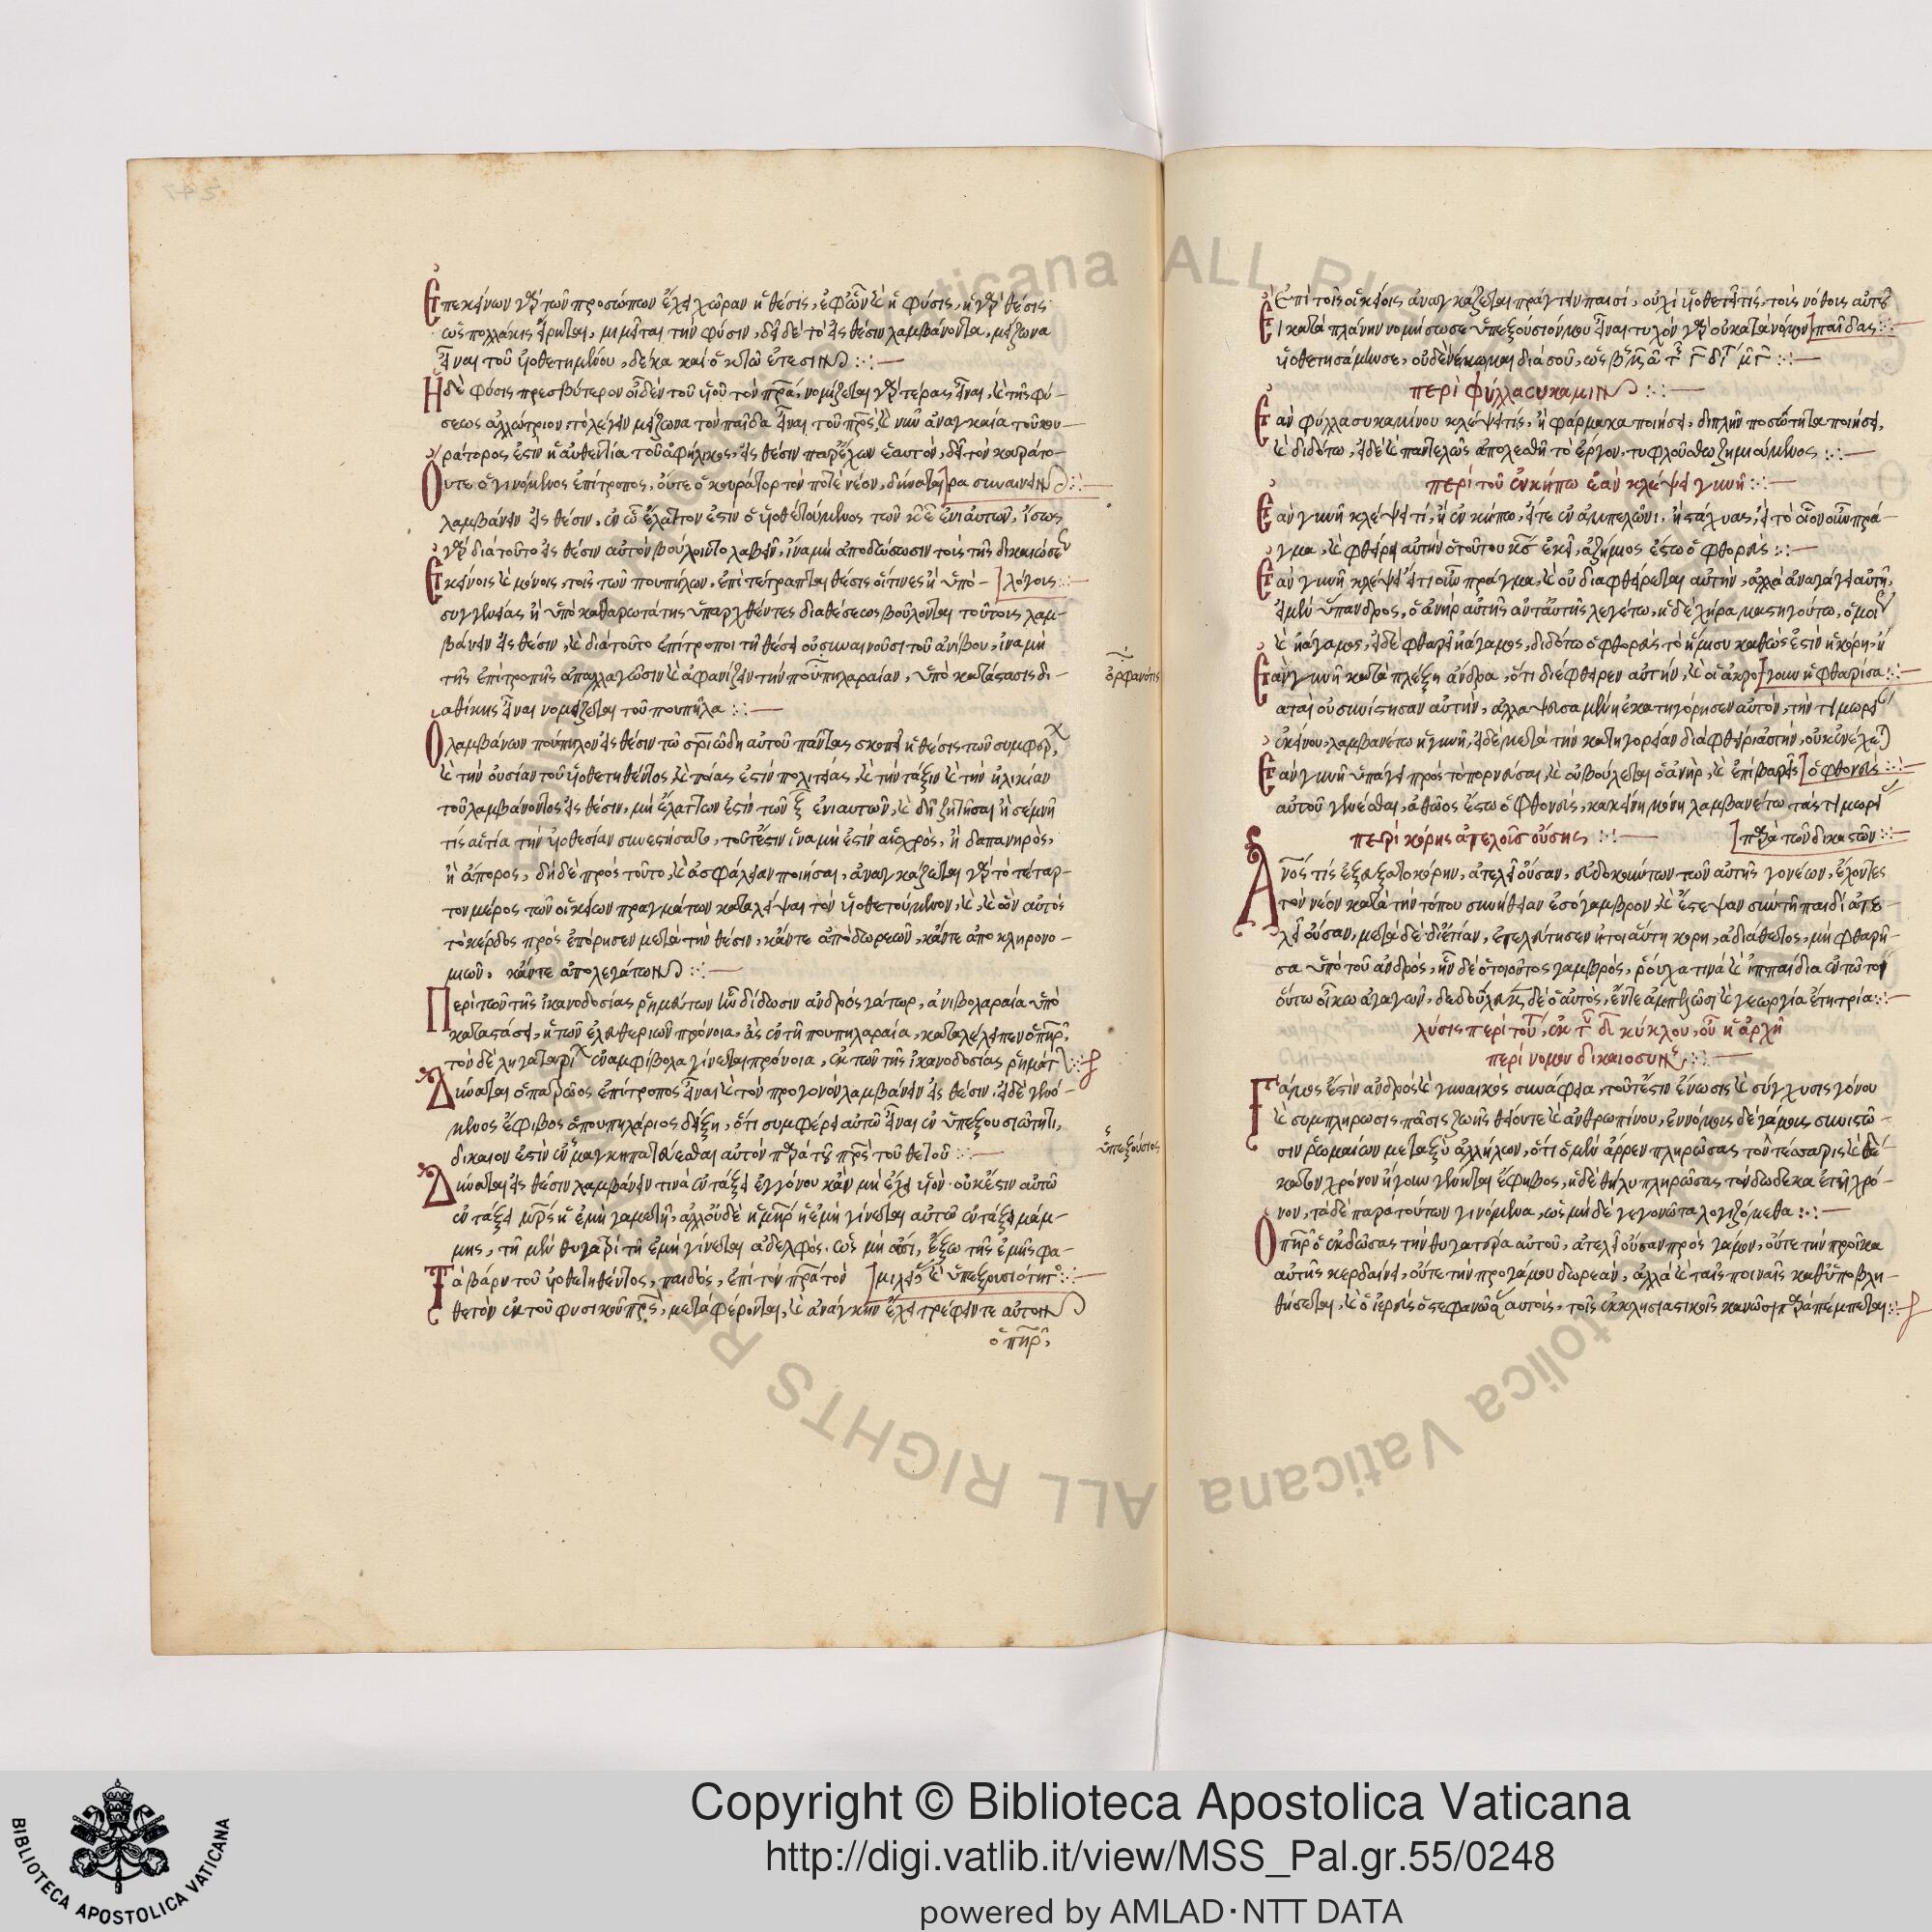 Ἐπεκείνων γὰρ τῶν προσώπων ἔχει χώραν ἡ θέσις, ἐφ᾽ ὧν καὶ ἡ φύσις, ἡ γὰρ θέσις
ὡς πολλάκις εἴρηται, μιμεῖται τὴν φύσιν, δεῖ δὲ τὸ εἰς θέσιν λαμβάνοντα, μείζωνα
εἶναι τοῦ υἱοθετημένου, δέκα καὶ ὀκτὼ ἔτεσιν
Ἡ δὲ φύσις πρεσβύτερον οἶδεν τοῦ υἱοῦ τὸν πρα, νομίζεται γὰρ τέρας εἶναι, καὶ τῆς φύ-
σεως ἀλλώτριον, τὸ λέγειν μείζωνα τὸν παῖδα εἶναι τοῦ πρς, καὶ νῦν ἀναγκαία τοῦ κου-
ράτορος ἐστιν ἡ αὐθεντία τοῦ ἀφήλικος, εἰς θέσιν παρέχων ἑαυτὸν, δεῖ τὸν κουράτο-
Οὔτε ὁ γινόμενος ἐπίτροπος, οὔτε ὁ κουράτορ τὸν ποτὲ νέον, δύναται ρα συναινεῖν
λαμβάνειν εἰς θέσιν, ἐν ὧ ἔλαττον ἐστὶν ὁ υἱοθετούμενος τῶν κε ἐνιαυτῶν, ἴσως
γὰρ διατοῦτο εἰς θέσιν αὐτὸν βούλοιντο λαβεῖν, ἵνα μὴ ἀποδώσωσιν τοὺς τῆς δικαιώσε
Ἐκείνοις καὶ μόνοις, τοῖς τῶν πουπήλων, ἐπιτέτραπται θέσις οἵτινες ἢ ὑπὸ λόγοις
συγγενείας ἢ ὑπὸ καθαρωτάτης ὑπαρχθέντες διαθέσεως βούλονται τούτοις λαμ-
βάνειν εἰς θέσιν, καὶ διατοῦτο ἐπίτροποι τῆ θέσει οὐ συναινοῦσι τοῦ ἀνίβου, ἵνα μὴ
τῆς ἐπιτροπῆς ἀπαλλαγῶσιν καὶ ἀφανίζειν τὴν πουπηλαραίαν, ὑπὸ κατάστασις δι-
αθήκης εἶναι νομίζεται τοῦ πουπήλα
ὀρφανότις
Ὁ λαμβάνων πούπηλον εἰς θέσιν
καὶ τὴν οὐσίαν τοῦ υἱοθετηθέντος, καὶ ποίας ἐστὶν πολιτείας, καὶ τὴν τάξιν καὶ τὴν ἡλικίαν
τοῦ λαμβάνοντος εἰς θέσιν, μὴ ἔλαττων ἐστὶν τῶν ξ ἐνιαυτῶν, καὶ δεῖ ζητῆσαι ἢ σέμνη
τίς αἰτία τὴν υἱοθεσίαν συνεστήσατο, τουτέστιν ἵνα μὴ ἐστὶν αἰσχρὸς, ἢ δαπανηρὸς,
ἢ ἄπορος, δεῖ δὲ πρὸς τοῦτο, καὶ ἀσφάλειαν ποιῆσαι, ἀναγκάζεται γὰρ τὸ τέταρ-
τον μέρος τῶν οἰκείων πραγμάτων καταλεῖψαι τὸν υἱοθετούμενον, καὶ, καὶ ὧν αὐτὸς
τὸ κέρδος πρὸς ἐπόρησεν μετὰ τὴν θέσιν, κἄντε ἀπὸ δωρεῶν, κἄντε ἀπὸ κληρονο-
μιῶν, κἄντε ἀπολεγάτων
Περὶ τῶν τῆς ἱκανοδοσίας ῥημάτων δίδωσιν ἀνδρὸς γάτωρ, ἀνιβολαραία ὑπὸ
καταστάσει, ἡ τῶν ἐλευθεριῶν πρόνοια, ἃς ἐν τῆ πουπηλαραία, καταλέλειπεν ὁ πηρ,
τὸν δὲ ληγατάρι ἀμφίβολα γίνεται πρόνοια, ἐκ τῶν τῆς ἱκανοδοσίας ῥημάτ
Δύναται ὁ πατρῶος ἐπίτροπος εἶναι καὶ τὸν προγονὸν λαμβάνειν εἰς θέσιν, εἰ δὲ γενό-
μενος ἔφιβος ὁ πουπηλάριος δείξη, ὅτι συμφέρει αὐτῶ εἶναι ἐν ὑπεξουσιώτητι,
δίκαιον ἐστὶν
ὑπεξούσιος
Δύναται εἰς θέσιν λαμβάνειν τινὰ ἐν τάξει ἐγγόνου κἂν μὴ ἔχει υἱὸν· οὐκ ἔστιν αὐτῶ
ἐν τάξει μρς ἡ ἐμὴ γαμετὴ, ἀλλ᾽ οὐδὲ ἡ μηρ ἡ ἐμὴ γίνεται αὐτῶ ἐν τάξει μάμ-
μης, τῆ μὲν θυγατρὶ τῆ ἐμῆ γίνεται ἀδελφὸς, ὡς μὴ ὦσι, ἔξω τῆς ἐμῆς φα-
Τὰ βάρη τοῦ υἱοθετηθέντος, παιδὸς, ἐπὶ τὸν πρα τὸν μιλίας καὶ ὑπεξουσιότητος
θετὸν ἐκ τοῦ φυσικοῦ πρς, μεταφέρονται, καὶ ἀνάγκην ἔχει τρέφειν τε αὐτὸν
ὁ πηρ,
Ἐπὶ τοῖς οἰκείοις, ἀναγκάζεται πράγειν παισὶ, οὐχὶ υἱοθετεῖ τίς, τοὺς νόθοις αὐτοῦ
Εἰ κατὰ πλάνην νομήσωσε ὑπεξούσιόν μου εἶναι τυχὸν γὰρ οὐ κατὰ νόμον παῖδας
υἱοθετησάμενσε, οὐδὲν ἔχωμαι διὰ σοῦ,
περὶ φύλλα συκαμιν
Ἐὰν φύλλα συκαμίνου κλέψει τίς, ἢ φάρμακα ποιήσει, διπλὴν ποσώτητα ποιήσει,
καὶ διδότω, εἰ δὲ καὶ παντελῶς ἀπολεσθῆ τὸ ἔργον, τυφλούσθω ζημιούμενος
περὶ τοῦ ἐν κήπω ἐὰν κλέψει γυνὴ
Ἐὰν γυνὴ κλέψει τί, ἢ ἐν κήπω, εἴτε ἐν ἀμπελῶνι, ἢ στάχυας, εἰ τὸ οἷον οὖν πρά-
γμα, καὶ φθείρη αὐτὴν ὁ τούτου κς ἐκεῖ, ἀζήμιος ἔστω ὁ φθορεὺς
Ἐὰν γυνὴ κλέψει ὅτι οὖν πράγμα, καὶ οὐ διαφθείρεται αὐτὴν, ἀλλὰ ἀναγάγει αὐτὴ,
εἰ μὲν ὕπανδρος, ὁ ἀνὴρ αὐτῆς ἀνταυτῆς λεγέτω, ἡ δὲ χήρα μαστιγούτω, ὅμοι
καὶ ἡ ἄγαμος, εἰ δὲ φθαρεῖ ἡ ἄγαμος, διδότω ὁ φθορεὺς τὸ ἥμισυ καθὼς ἐστὶν ἡ κόρη, ἢ
Ἐὰν γυνὴ καταπλέξη ἄνδρα, ὅτι διέφθειρεν αὐτὴν, καὶ οἱ ἀκρο γουν ἡ φθαρῖσα
αταὶ οὐ συνίστησαν αὐτὴν, ἀλλὰ ψεῖσα μὲν ἢ ἐκατηγόρησεν αὐτὸν, τὴν τιμωρί
ἐκείνου, λαμβανέτω ἡ γυνὴ, εἰ δὲ μετὰ τὴν κατηγορείαν
Ἐὰν γυνὴ ὑπάγει πρὸς τὸ πορνεῦσαι, καὶ οὐ βούλεται ὁ ἀνὴρ, καὶ ἐπιβαρεῖς ὁ φθονεὶς
αὐτοῦ γενέσθαι, ἀθῶος ἔστω ὁ φθονεὶς, κακείνη μόνη λαμβανέτω τὰς τιμωρί
περὶ κόρης ἀτελοῦς οὔσης, παρὰ τῶν δικαστῶν
Ἀνος τίς ἐξεύξατο κόρην, ἀτελῆ οὖσαν, εὐδοκούντων τῶν αὐτῆς γονέων, ἔχοντες
τὸν νέον κατὰ τὴν τόπου συνήθειαν ἐσόγαμβρον, καὶ ἔστεψαν σὺν τῆ παιδὶ ἀτε-
λεῖ οὖσαν, μετὰ δὲ διετίαν, ἐτελεύτησεν ἤτοι αὕτη κόρη, ἀδιάθετος, μὴ φθαρῆ-
σα ὑπὸ τοῦ ἀνδρὸς, ἦν δὲ ὁ τοιοῦτος γαμβρὸς, ῥοῦχα τινὰ καὶ ἱππαίδια ἐν τῶ τοι
ούτω οἴκω ἀγαγὼν,
λύσις περὶ τού, ἐκ τ δι κύκλου, οὗ ἡ ἀρχὴ
περὶ νόμου δικαιοσύν
Γάμος ἐστὶν ἀνδρὸς καὶ γυναικὸς συνάφεια, τουτέστιν ἕνωσις καὶ σύγχυσις γόνου
καὶ συμπλήρωσις πάσις ζωῆς θείου τε καὶ ἀνθρωπίνου, ἐννόμοις δὲ γάμοις συνιστῶ-
σιν ῥωμαίων μεταξὺ ἀλλήλων, ὅτι ὁ μὲν ἄρρεν πληρώσας τὸν τέσσαρις καὶ δέ-
κατον χρόνον ἤγουν γένηται ἔφηβος, ἡ δὲ θῆλυ πληρώσας τὸν δώδεκα ἔτη χρό-
νον, τὰ δὲ παρὰ τούτων γινόμενα, ὡς μὴ δὲ γεγονῶτα λογιζόμεθα
Ὁ πηρ ὁ ἐκδώσας τὴν θυγατέρα αὐτοῦ, ἀτελῆ οὖσαν πρὸς γάμον, οὔτε τὴν προῖκα
αὐτῆς κερδαίνει, οὔτε τὴν προγάμου δωρεὰν, ἀλλὰ καὶ ταῖς ποιναῖς καθυποβλη-
θήσεται, καὶ ὁ ἱερεὺς ὁ στεφανῶν αὐτοὺς, τοῖς ἐκκλησιαστικοῖς κανῶσι παραπέμπεται
Copyright © Biblioteca Apostolica Vaticana
http://digi.vatlib.it/view/MSS_Pal.gr.55/0248
powered by AMLAD·NTT DATA
BIBLIOTECA APOSTOLICA VATICANA